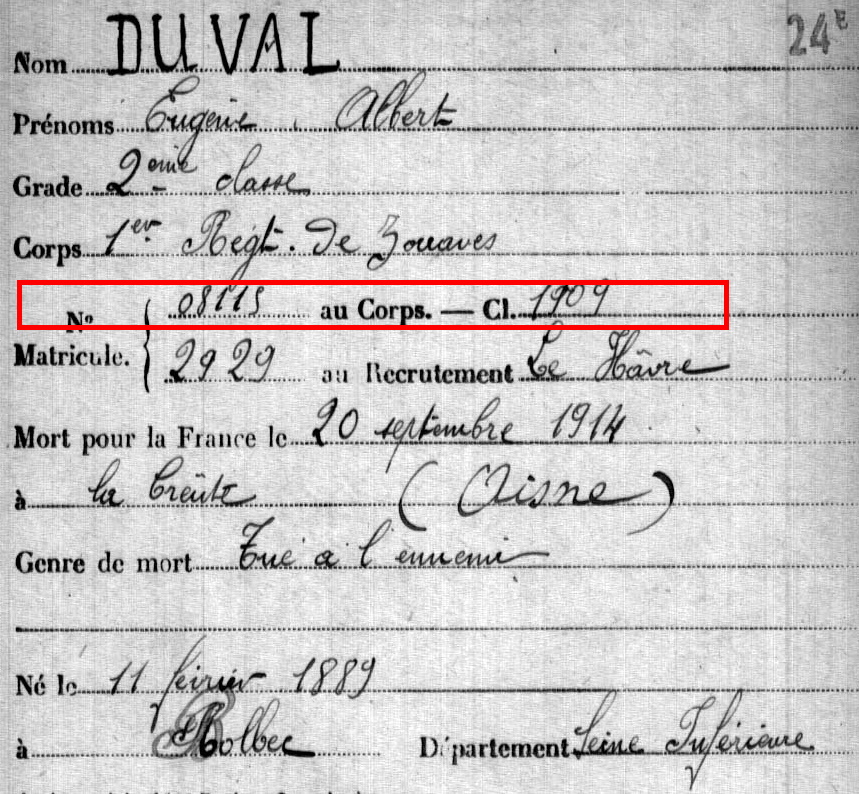 24E
Nom DUVAL
Prénoms Eugène, Albert
Grade 2ème classe
Corps 1er Regt. de Zouaves
No 08115 au Corps. — Cl. 1909
Matricule. 2929 au Recrutement Le Hâvre
Mort pour la France le 20 septembre 1914
à la Creûte (Aisne)
Genre de mort Tué à l'ennemi
Né le 11 février 1889
à Bolbec Département Seine Inférieure